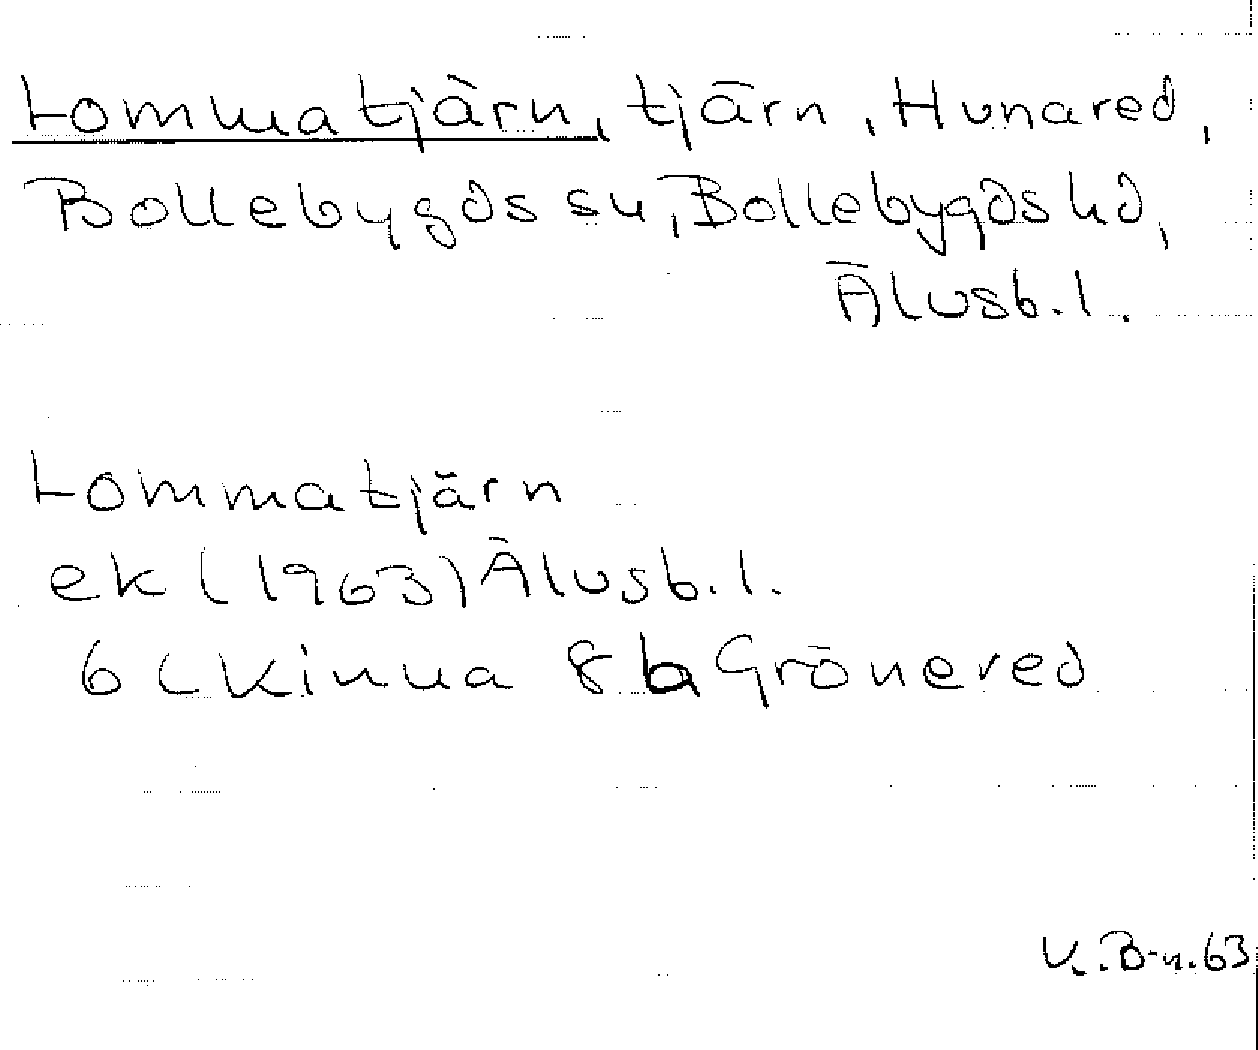 Lommatjärn, tjärn, Hunared,
Bollebygds sn, Bollebygds hd,
Älvsb. l.
Lommatjärn
ek (1963) Älvsb. l.
6 C Kinna 8 b Grönered
V. B-n. 63